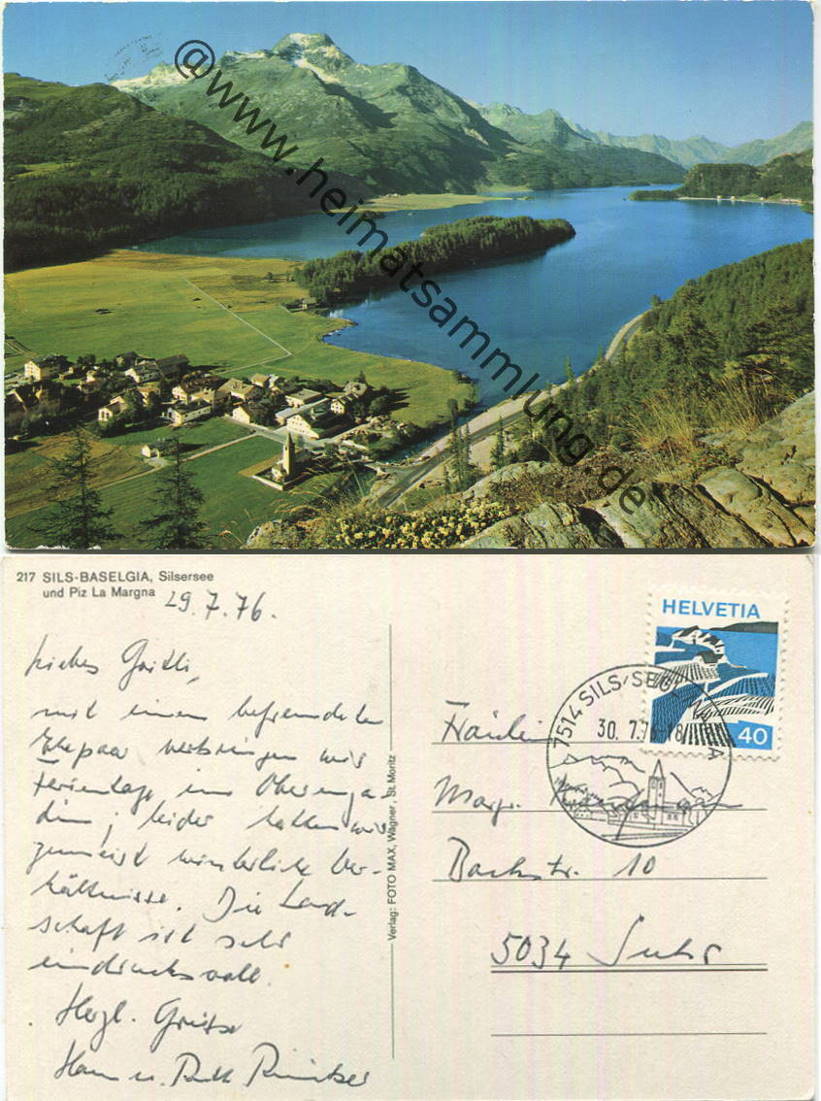 @www.heimatsammlung.de
217 SILS-BASELGIA, Silsersee
und Piz La Margna
29.7.76.
Liebes Gritli,
mit einem befreundeten
Ehepaar verbringen wir
Ferientage im Oberenga-
din; leider hatten wir
zumeist winterliche Ver-
hältnisse. Die Land-
schaft ist sehr
eindrucksvoll.
Herzl. Grüsse
Hans u. Ruth
Verlag: FOTO MAX, Wagner, St. Moritz
HELVETIA
40
7514 SILS/SEGL
30.7.76 18
Fräulein
Margr.
Bachstr. 10
5034 Suhr